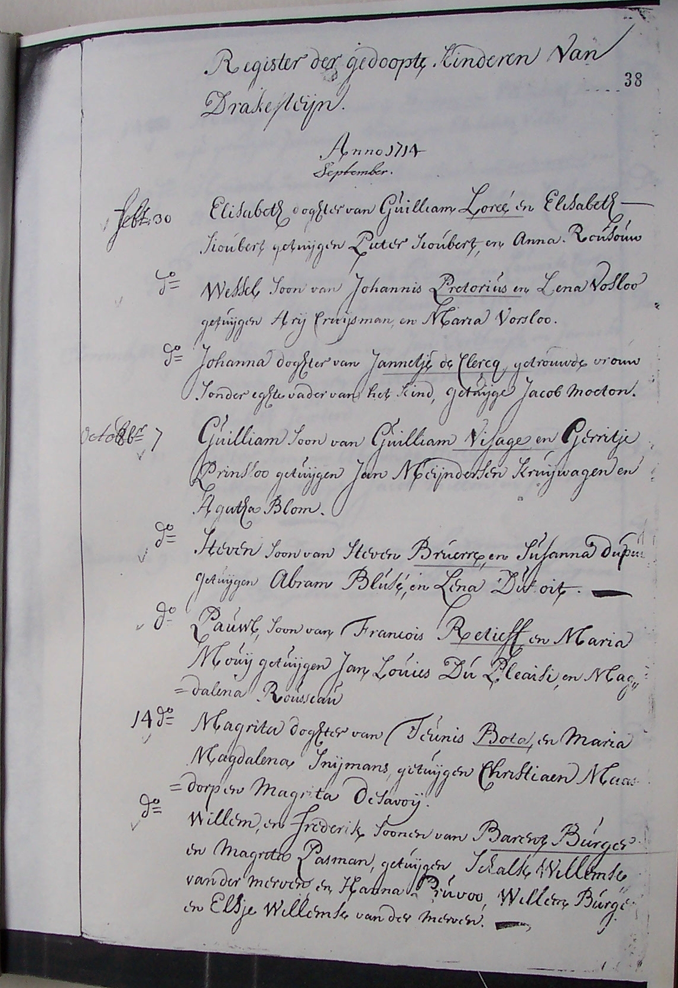 Register der gedoopte kinderen van
38
Drakesteijn.
Anno 1714
September.
Sebt: 30 Elisabeth doghter van Guilliam Loreé en Elisabeth
Joubert getuijgen Pieter Joubert, en Anna Rousouw
do Wessel soon van Johannis Pretorius en Lena Vosloo
getuijgen Arij Cruijsman, en Maria Vorsloo.
do Johanna doghter van Jannetje de Clercq, getrouwde vrouw
sonder eghte vader van het kind, getuijge Jacob Mocton.
October 7 Guilliam soon van Guilliam Visage en Gerritje
Prinsloo getuijgen Jan Meijndersen Kruijwagen en
Agutha Blom.
do Steven soon van Steven Bruerre, en Susanna dupui
getuijgen Abram Blusé, en Lena Dutoit.
do Pauwl, soon van Francois Retieff en Maria
Mouij getuijgen Jan Louies Du Pleaisi, en Mag
=dalena Rousseau
14 do Magrita doghter van Teunis Bota, en Maria
Magdalena Snijmans, getuijgen Christiaen Maas
=dorp en Magrita De Savoij.
do Willem, en frederik soonen van Barent Burger
en Magreta Pasman, getuijgen Schalk Willemse
van der merven en Hanna Pruvoo, Willem Burge
en Elsje Willemse van der merven.